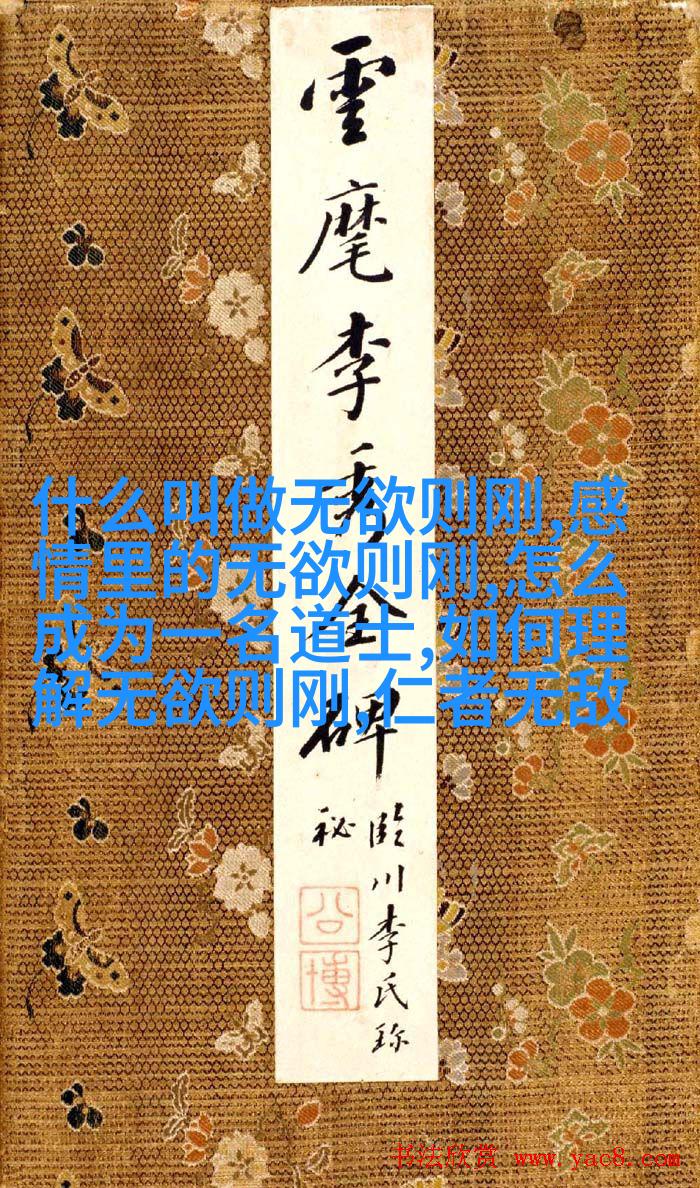 雲麾李秀全碑
臨川李氏珎
秘
公博
什么叫做无欲则刚,感
情里的无欲则刚,怎么
成为一名道士,如何理
解无欲则刚,仁者无敌
书法欣赏 www.yac8.com